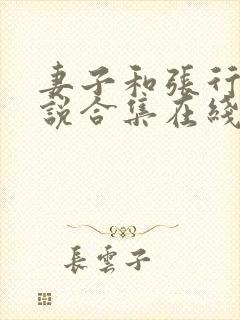 妻子和張行
說合集在綫
長雲子